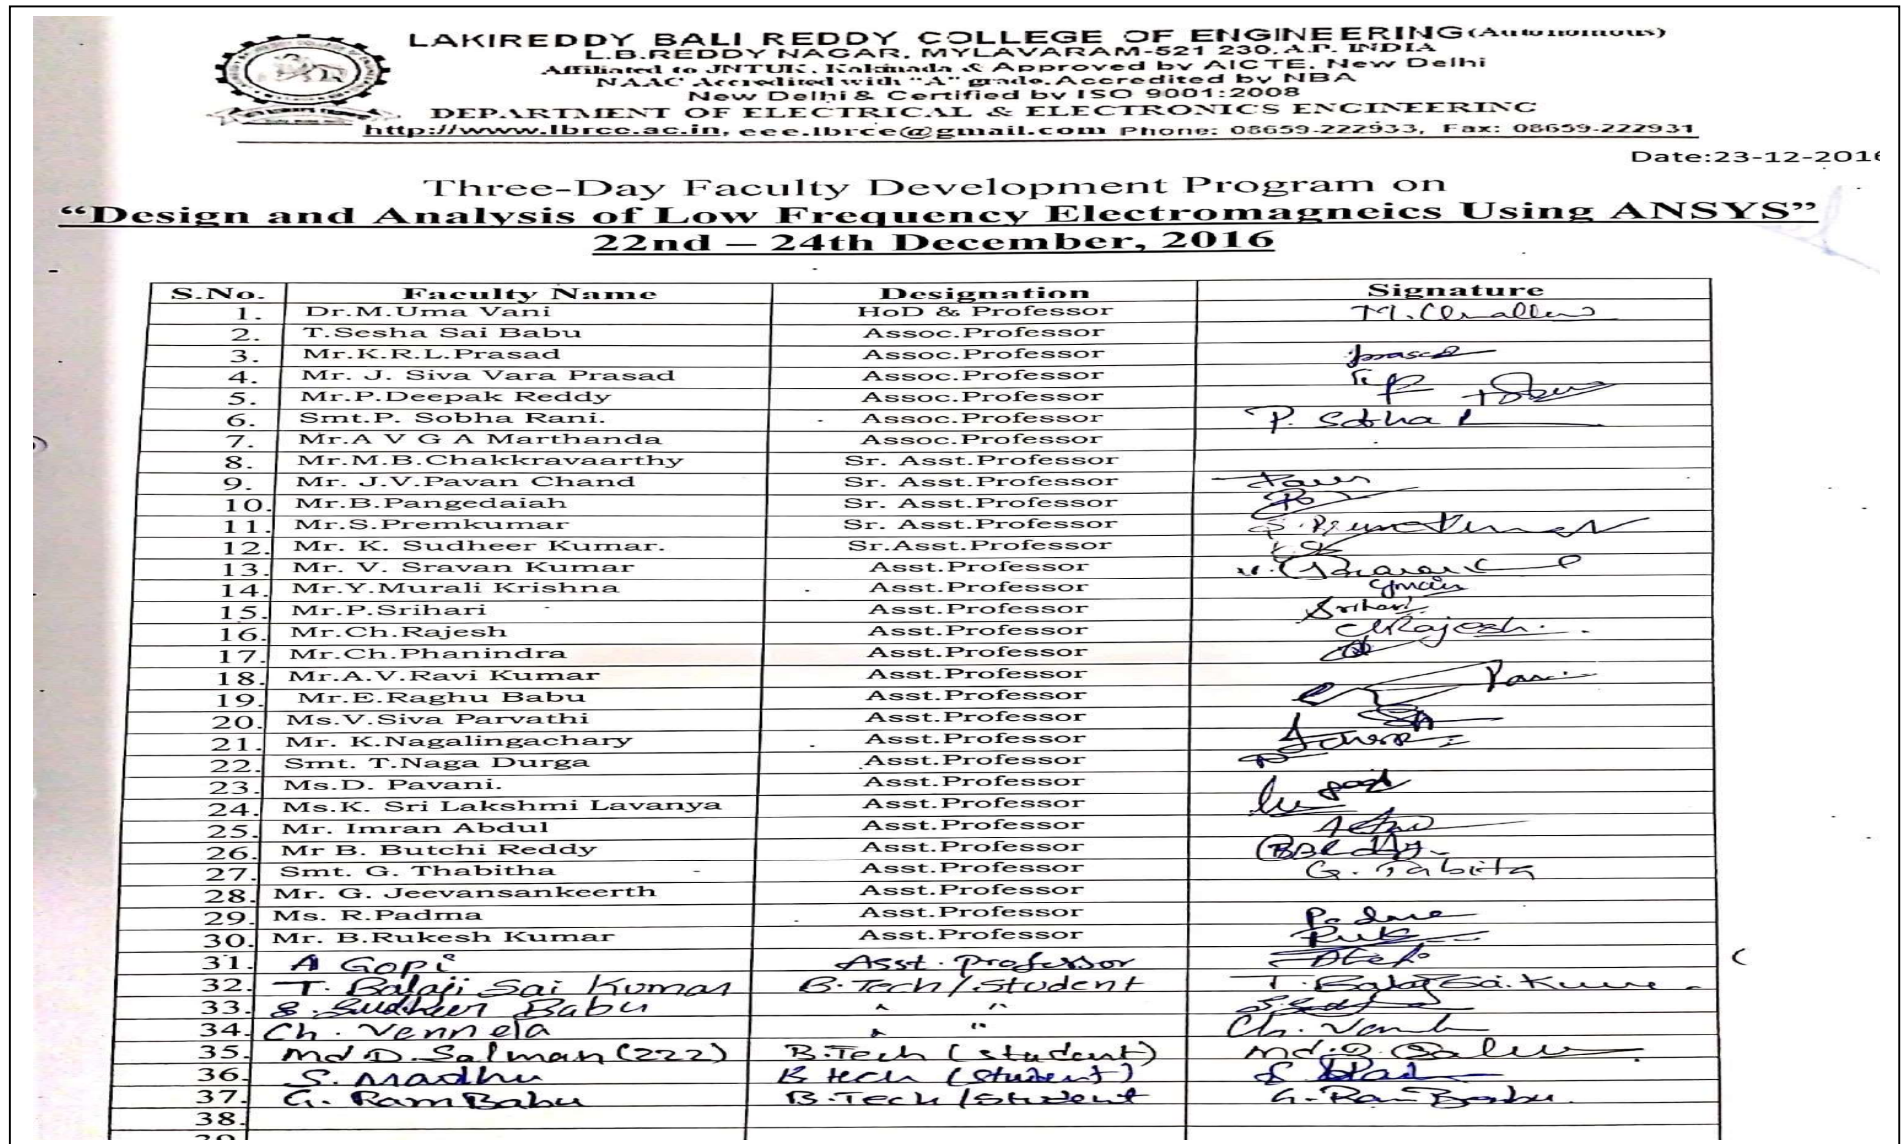 LAKIREDDY BALI REDDY COLLEGE OF ENGINEERING (Autonomous)
L.B.REDDY NAGAR, MYLAVARAM-521 230, A.P. INDIA
Affiliated to JNTUK, Kakinada & Approved by AICTE, New Delhi
NAAC Accredited with "A" grade, Accredited by NBA
New Delhi & Certified by ISO 9001:2008
DEPARTMENT OF ELECTRICAL & ELECTRONICS ENGINEERING
http://www.lbrce.ac.in, eee.lbrce@gmail.com Phone: 08659-222933, Fax: 08659-222931
Date:23-12-2016
Three-Day Faculty Development Program on
“Design and Analysis of Low Frequency Electromagneics Using ANSYS”
22nd – 24th December, 2016
S.No. Faculty Name Designation Signature
1. Dr.M.Uma Vani HoD & Professor
2. T.Sesha Sai Babu Assoc.Professor
3. Mr.K.R.L.Prasad Assoc.Professor prasad
4. Mr. J. Siva Vara Prasad Assoc.Professor
5. Mr.P.Deepak Reddy Assoc.Professor
6. Smt.P. Sobha Rani. Assoc.Professor P. Sobha
7. Mr.A V G A Marthanda Assoc.Professor
8. Mr.M.B.Chakkravaarthy Sr. Asst.Professor
9. Mr. J.V.Pavan Chand Sr. Asst.Professor
10. Mr.B.Pangedaiah Sr. Asst.Professor
11. Mr.S.Premkumar Sr. Asst.Professor
12. Mr. K. Sudheer Kumar. Sr.Asst.Professor
13. Mr. V. Sravan Kumar Asst.Professor
14. Mr.Y.Murali Krishna Asst.Professor
15. Mr.P.Srihari Asst.Professor Srihari
16. Mr.Ch.Rajesh Asst.Professor ChRajesh.
17. Mr.Ch.Phanindra Asst.Professor
18. Mr.A.V.Ravi Kumar Asst.Professor
19. Mr.E.Raghu Babu Asst.Professor
20. Ms.V.Siva Parvathi Asst.Professor
21. Mr. K.Nagalingachary Asst.Professor
22. Smt. T.Naga Durga Asst.Professor
23. Ms.D. Pavani. Asst.Professor
24. Ms.K. Sri Lakshmi Lavanya Asst.Professor
25. Mr. Imran Abdul Asst.Professor
26. Mr B. Butchi Reddy Asst.Professor
27. Smt. G. Thabitha Asst.Professor G. Tabita
28. Mr. G. Jeevansankeerth Asst.Professor
29. Ms. R.Padma Asst.Professor Padma
30. Mr. B.Rukesh Kumar Asst.Professor
31. A Gopi Asst. Professor
32. T. Balaji Sai Kumar B.Tech/Student T. Balaji Sai. Kumar
33. S. Sudheer Babu " "
34. Ch. Vennela " "
35. Md D. Salman (222) B.Tech (student)
36. S. Madhu B tech (student)
37. G. Ram Babu B.Tech/Student G. Ram Babu.
38.
39.